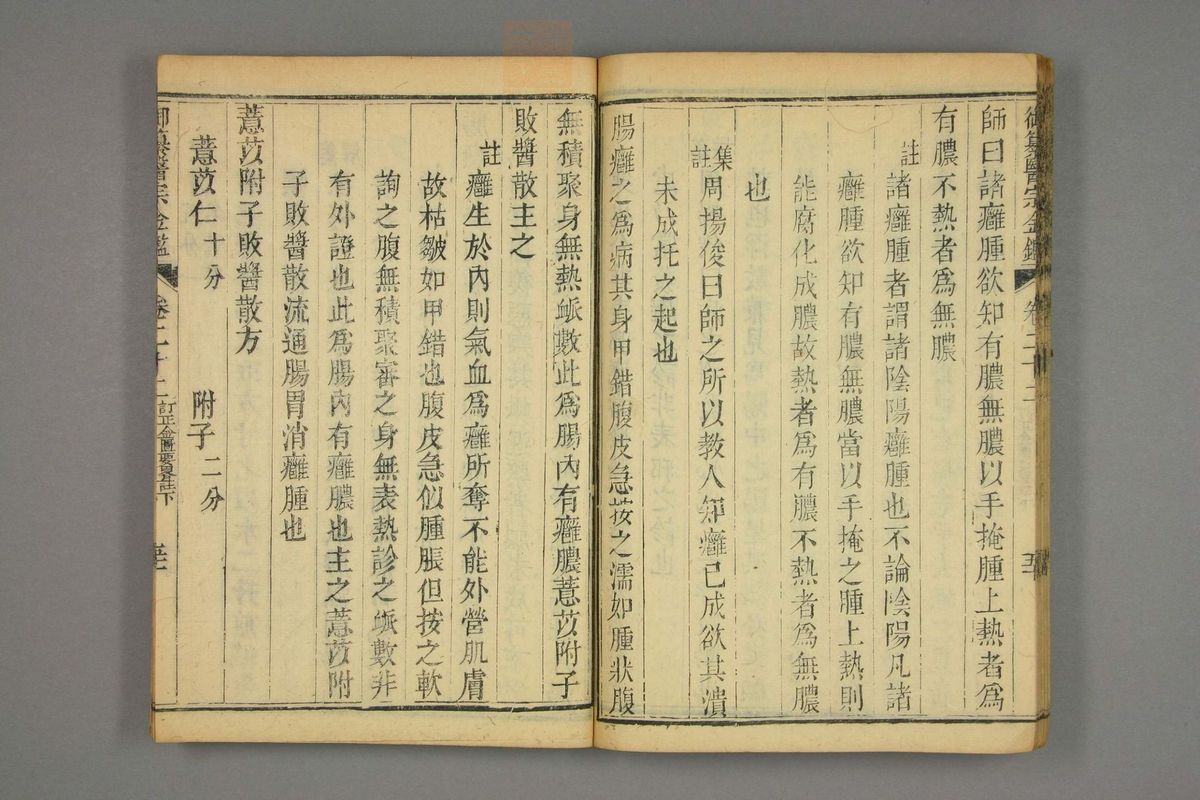 御纂醫宗金鑑 卷二十二
師曰諸癰腫欲知有膿無膿以手掩腫上熱者爲
有膿不熱者爲無膿
註諸癰腫者謂諸陰陽癰腫也不論陰陽凡諸
癰腫欲知有膿無膿當以手掩之腫上熱則
能腐化成膿故熱者爲有膿不熱者爲無膿
也
集註周揚俊曰師之所以教人知癰已成欲其潰
未成托之起也
腸癰之爲病其身甲錯腹皮急按之濡如腫狀腹
無積聚身無熱衇數此爲腸內有癰膿薏苡附子
敗醬散主之
註癰生於內則氣血爲癰所奪不能外營肌膚
故枯皺如甲錯也腹皮急似腫脹但按之軟
詢之腹無積聚審之身無表熱診之衇數非
有外證也此爲腸內有癰膿也主之薏苡附
子敗醬散流通腸胃消癰腫也
薏苡附子敗醬散方
薏苡仁十分 附子二分
御纂醫宗金鑑 卷二十二 訂正金匱要畧註下